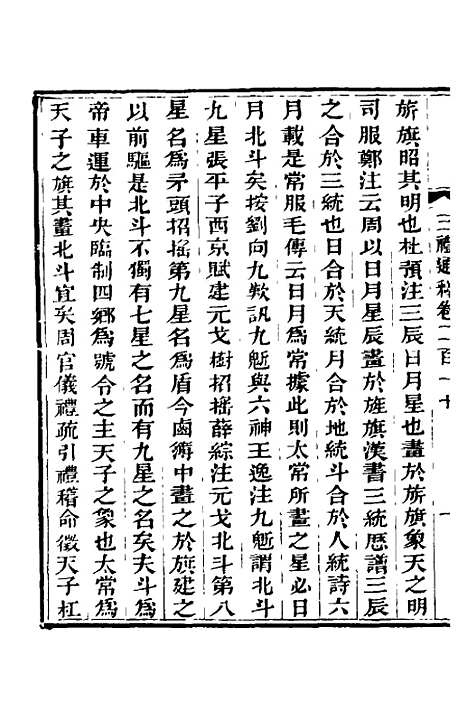 三禮通釋卷二百二十　一
旂旗昭其明也杜預注三辰日月星也畫於旂旗象天之明
司服鄭注云周以日月星辰畫於旌旗漢書三統厯譜三辰
之合於三統也日合於天統月合於地統斗合於人統詩六
月載是常服毛傳云日月爲常據此則太常所畫之星必日
月北斗矣按劉向九歎訊九鬿與六神王逸注九鬿謂北斗
九星張平子西京賦建元戈樹招搖薛綜注元戈北斗第八
星名爲矛頭招搖第九星名爲盾今鹵簿中畫之於旗建之
以前驅是北斗不獨有七星之名而有九星之名矣夫斗爲
帝車運於中央臨制四鄉爲號令之主天子之象也太常爲
天子之旗其畫北斗宜矣周官儀禮疏引禮稽命徵天子杠